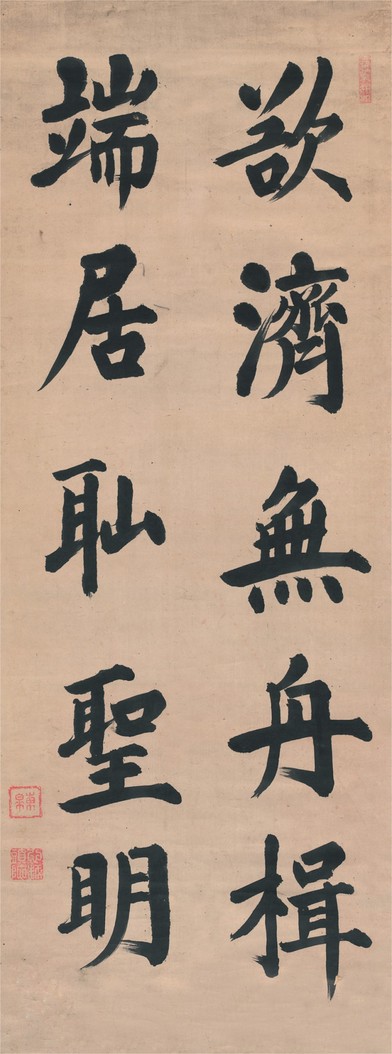 欲濟無舟楫
端居耻聖明